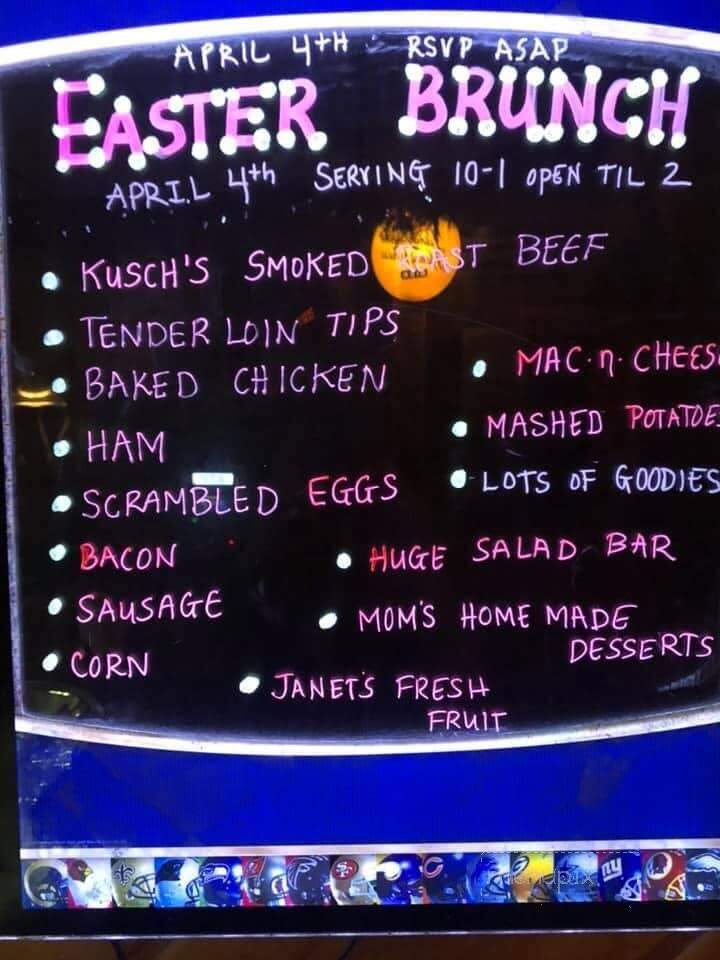 APRIL 4TH RSVP ASAP
EASTER BRUNCH
APRIL 4th SERVING 10-1 OPEN TIL 2
KUSCH'S SMOKED ROAST BEEF
TENDER LOIN TIPS
BAKED CHICKEN
HAM
SCRAMBLED EGGS
BACON
SAUSAGE
CORN
MAC·n·CHEES
MASHED POTATOE
LOTS OF GOODIES
HUGE SALAD BAR
MOM'S HOME MADE
DESSERTS
JANET'S FRESH
FRUIT
ny